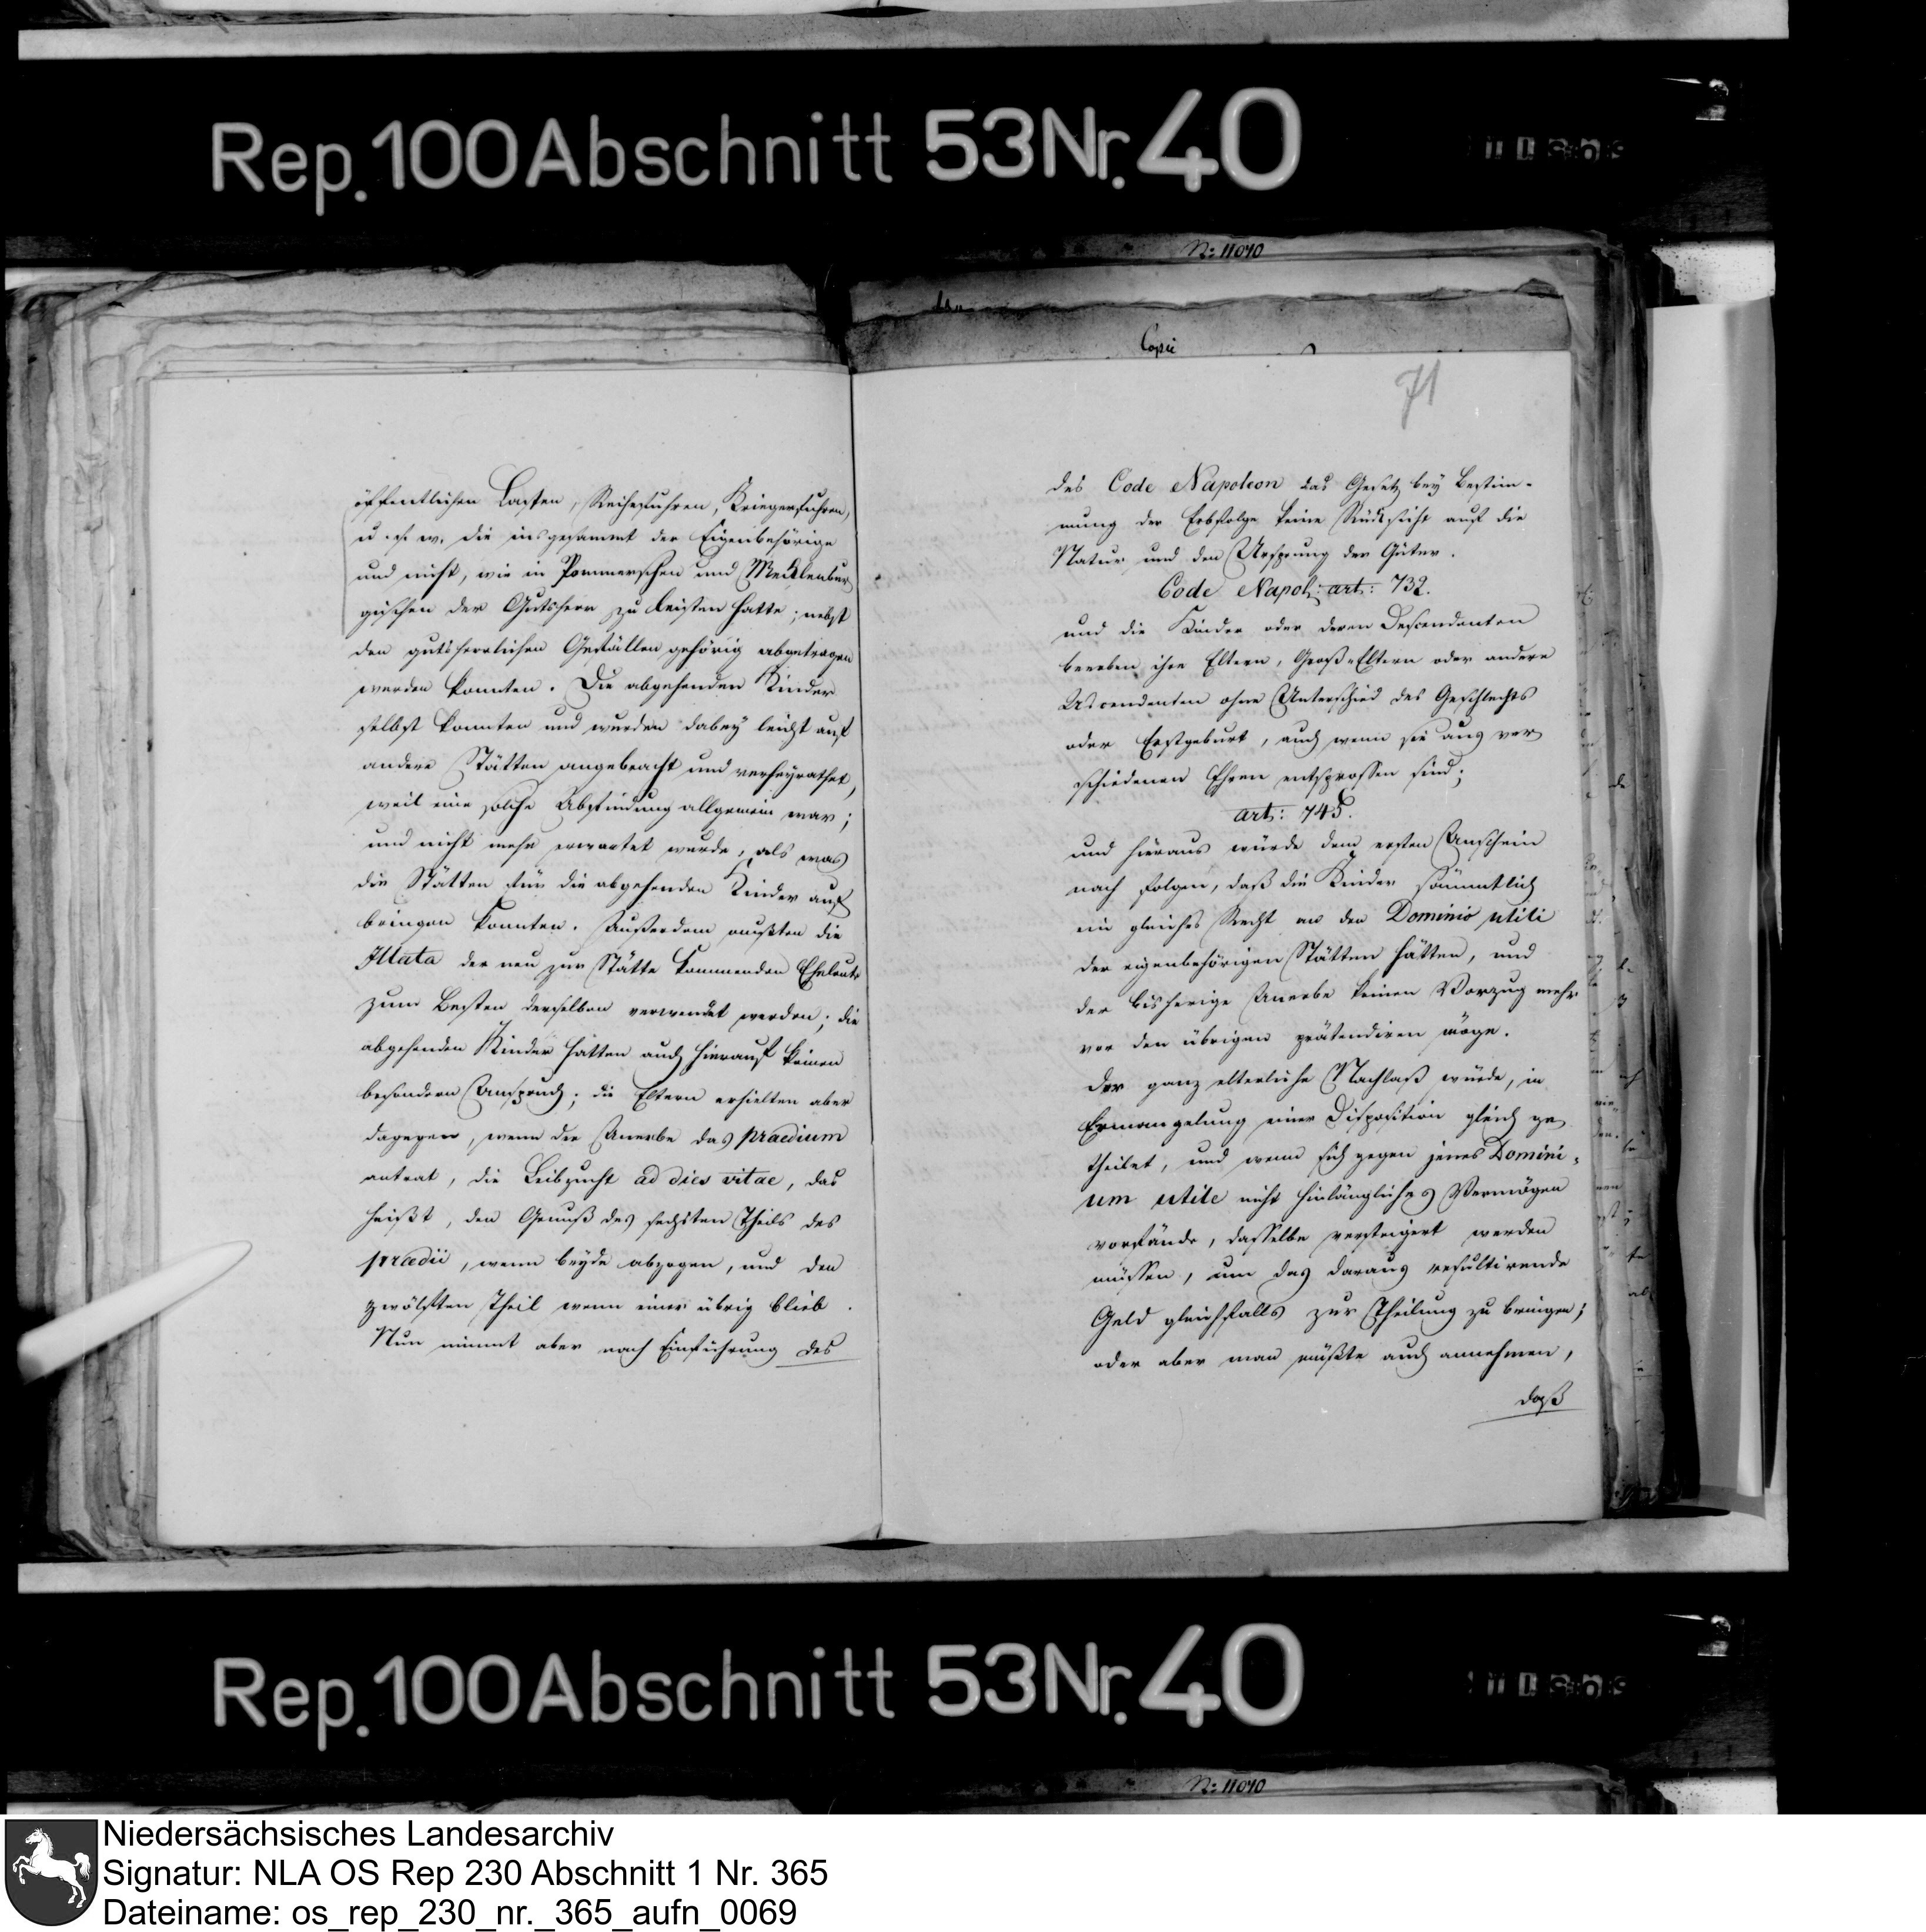 Rep. 100 Abschnitt 53 Nr. 40
N: 11040
Copii
71
öffentlichen Lasten, Reihefuhren, Kriegerfuhren,
u. s. w. die insgesammt der Eigenbehörige
und nicht, wie in Pommerschen und Mecklenbur
gischen der Gutsherr zu leisten hatte; nebst
den gutsherrlichen Gefällen gehörig abgetragen
werden konnten. Die abgehenden Kinder
selbst konnten und wurden dabey leicht auf
andere Stätten angebracht und verheyrathet,
weil eine solche Abfindung allgemein war;
und nicht mehr erwartet wurde, als was
die Stätten für die abgehenden Kinder auf
bringen konnten. Außerdem mußten die
Illata der neu zur Stätte kommenden Eheleute
zum Besten derselben verwendet werden; die
abgehenden Kinder hatten auch hierauf keinen
besondern Anspruch; die Eltern erhielten aber
dagegen, wenn der Anerbe das praedium
antrat, die Leibzucht ad dies vitae, das
heißt, den Genuß des sechsten Theils des
praedii, wenn beyde abzogen, und den
zwölften Theil wenn einer übrig blieb.
Nun nimmt aber nach Einführung des
des Code Napoleon das Gesetz bey Bestim-
mung der Erbfolge keine Rücksicht auf die
Natur und den Ursprung der Güter.
Code Napol: art: 732.
und die Kinder oder deren Descendenten
beerben ihre Eltern, Groß-Eltern oder andere
Ascendenten ohne Unterschied des Geschlechts
oder Erstgeburt, auch wenn sie aus ver
schiedenen Ehen entsprossen sind;
art: 745.
und hieraus würde dem ersten Anschein
nach folgen, daß die Kinder sämmtlich
ein gleiches Recht an den Dominio utili
der eigenbehörigen Stätten hätten, und
der bisherige Anerbe keinen Vorzug mehr
vor den übrigen prätendiren möge.
Der ganz elterliche Nachlaß würde, in
Ermangelung einer Disposition gleich ge
theilet, und wenn sich gegen jenes Domini-
um utile nicht hinlängliches Vermögen
vorfände, dasselbe versteigert werden
müssen, um das daraus resultirende
Geld gleichfalls zur Theilung zu bringen;
oder aber man müßte auch annehmen,
daß
Rep. 100 Abschnitt 53 Nr. 40
N: 11040
Niedersächsisches Landesarchiv
Signatur: NLA OS Rep 230 Abschnitt 1 Nr. 365
Dateiname: os_rep_230_nr._365_aufn_0069